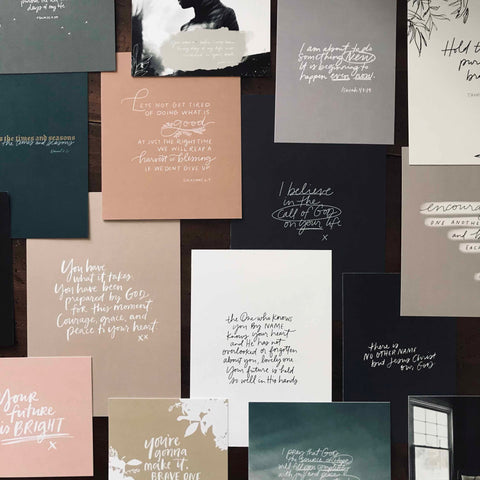 days of my life
I am about to do
something NEW
It is beginning to
happen even now.
Isaiah 43:19
Hold t
pu
b
LETS NOT GET TIRED
OF DOING WHAT IS
good
AT JUST THE RIGHT TIME
WE WILL REAP A
harvest of blessing
IF WE DON'T GIVE UP.
GALATIANS 6:9
s the times and seasons
the times and seasons
I believe
in the
call of God
on your life
x
encoura
ONE ANOTHE
and
EAC
You have
what it takes.
You have been
prepared by GOD
for this moment.
Courage, grace, and
peace to your heart.
xx
the One who knows
you by NAME
knows your heart
and He has not
overlooked or forgotten
about you, lovely one
Your future is held
so well in His hands
there is
NO OTHER NAME
but Jesus Christ
our God
Your
future
is BRIGHT
x
you're
gonna
make it.
BRAVE ONE
I pray that God,
the source of hope
will fill you completely
with joy and peace